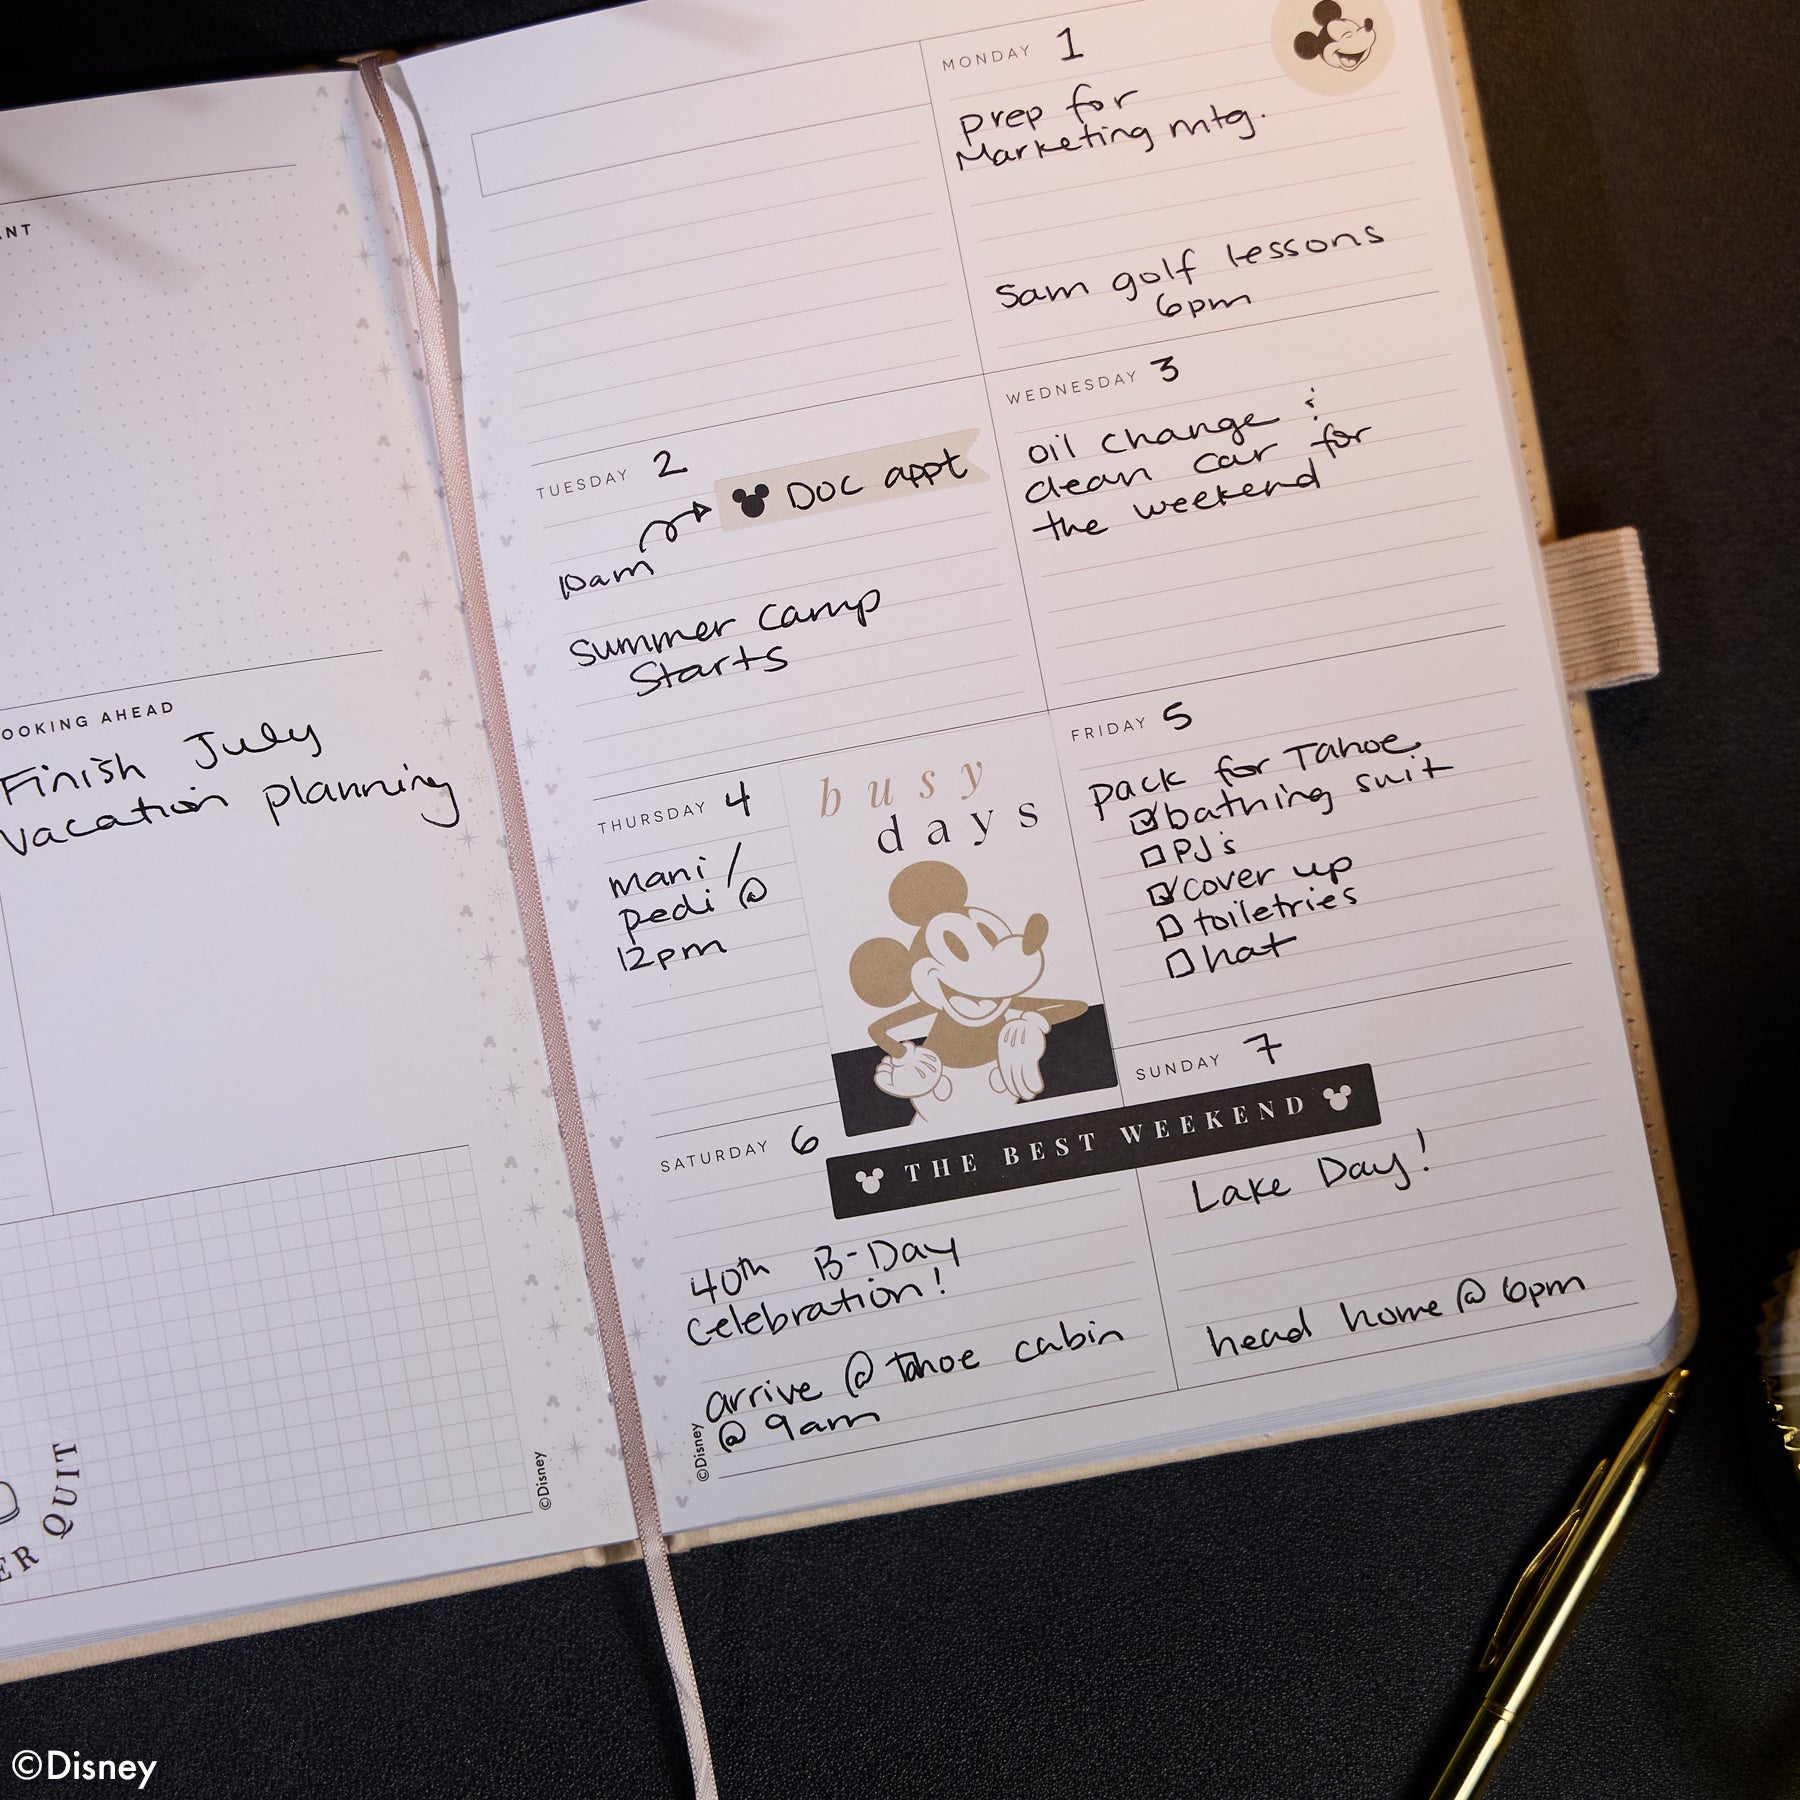 ANT
OOKING AHEAD
Finish July
vacation planning
ER QUIT
©Disney
MONDAY 1
prep for
Marketing mtg.
Sam golf lessons
6pm
TUESDAY 2
DOC appt
10am
Summer Camp
Starts
WEDNESDAY 3
oil change &
clean car for
the weekend
THURSDAY 4
mani/
pedi @
12pm
busy
days
FRIDAY 5
pack for Tahoe
bathing suit
PJ's
cover up
toiletries
hat
SATURDAY 6
THE BEST WEEKEND
40th B-Day
celebration!
arrive @ tahoe cabin
@ 9am
SUNDAY 7
Lake Day!
head home @ 6pm
©Disney
©Disney